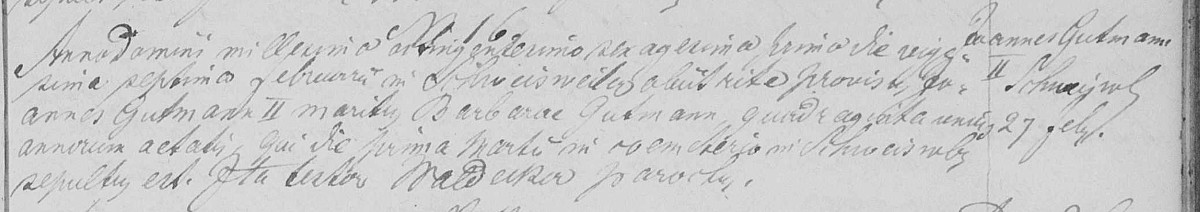 N 16
Anno Domini millesimo octingentesimo sexagesimo primo die vige-
sima septima Februarii in Schweisweiler obiit rite provisus Jo-
annes Gutmann II maritus Barbarae Gutmann, quadraginta unius
annorum aetatis, qui die prima Martii in coemeterio in Schweisweil
sepultus est. Ita testor Waldecker parochus.
Joannes Gutmann
II Schweisweil
27 Febr.